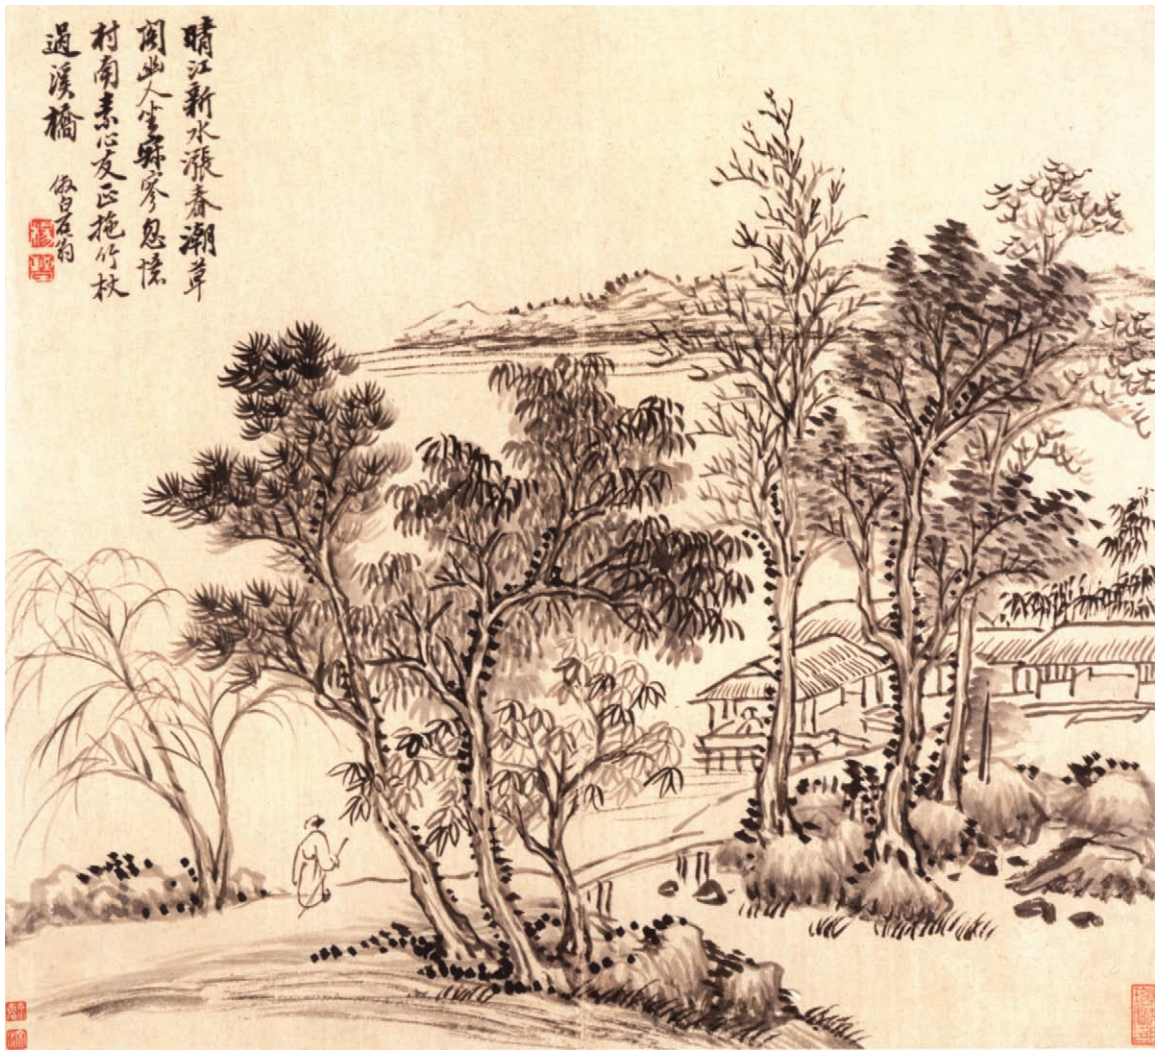 晴江新水漲春潮草
閣幽人坐寂寥忽憶
村南素心友正拖竹杖
過溪橋
倣白石翁